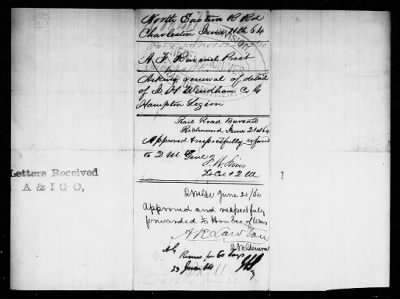 North Eastern R Rd
Charleston June 11th 64
A. F. Ravenel Prest
Asking renewal of detail
of Windham Co G
Hampton Legion
Rail Road Bureau
Richmond June 21st 64
Approved & respectfully referred
to Q M Genl
F. W. Sims
Lt Col & QM
June 21/64
Approved and respectfully
forwarded to Hon Sec of War
A R Lawton
for 60 days
23 June 64
Letters Received
A & I G O,